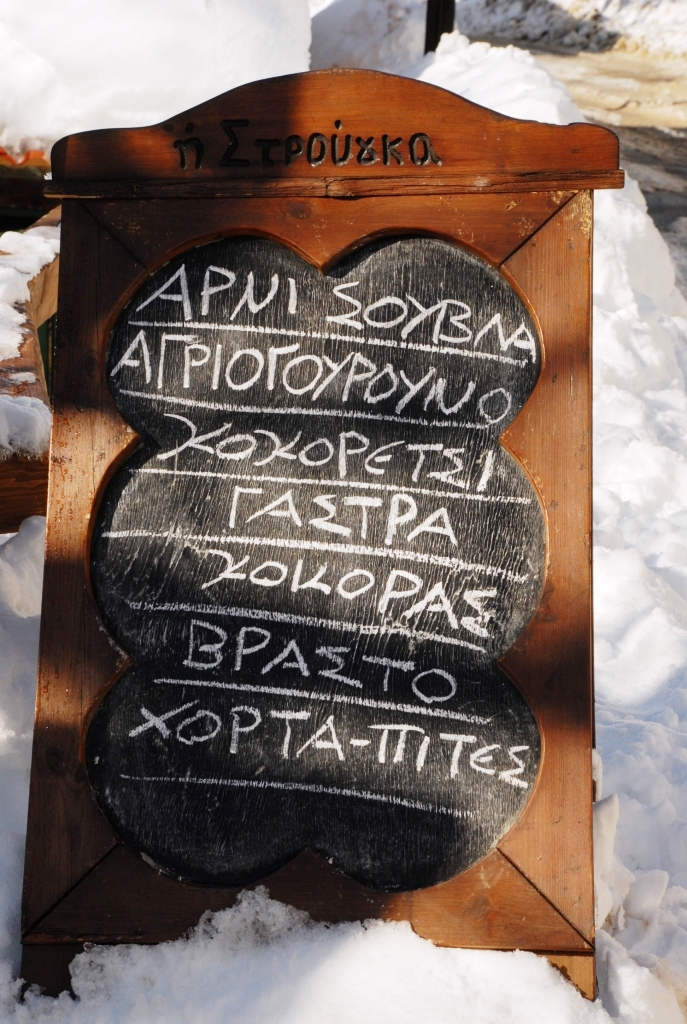 ἡ Στρούγκα
ΑΡΝΙ ΣΟΥΒΛΑ
ΑΓΡΙΟΓΟΥΡΟΥΝΟ
ΚΟΚΟΡΕΤΣΙ
ΓΑΣΤΡΑ
ΚΟΚΟΡΑΣ
ΒΡΑΣΤΟ
ΧΟΡΤΑ-ΠΙΤΕΣ